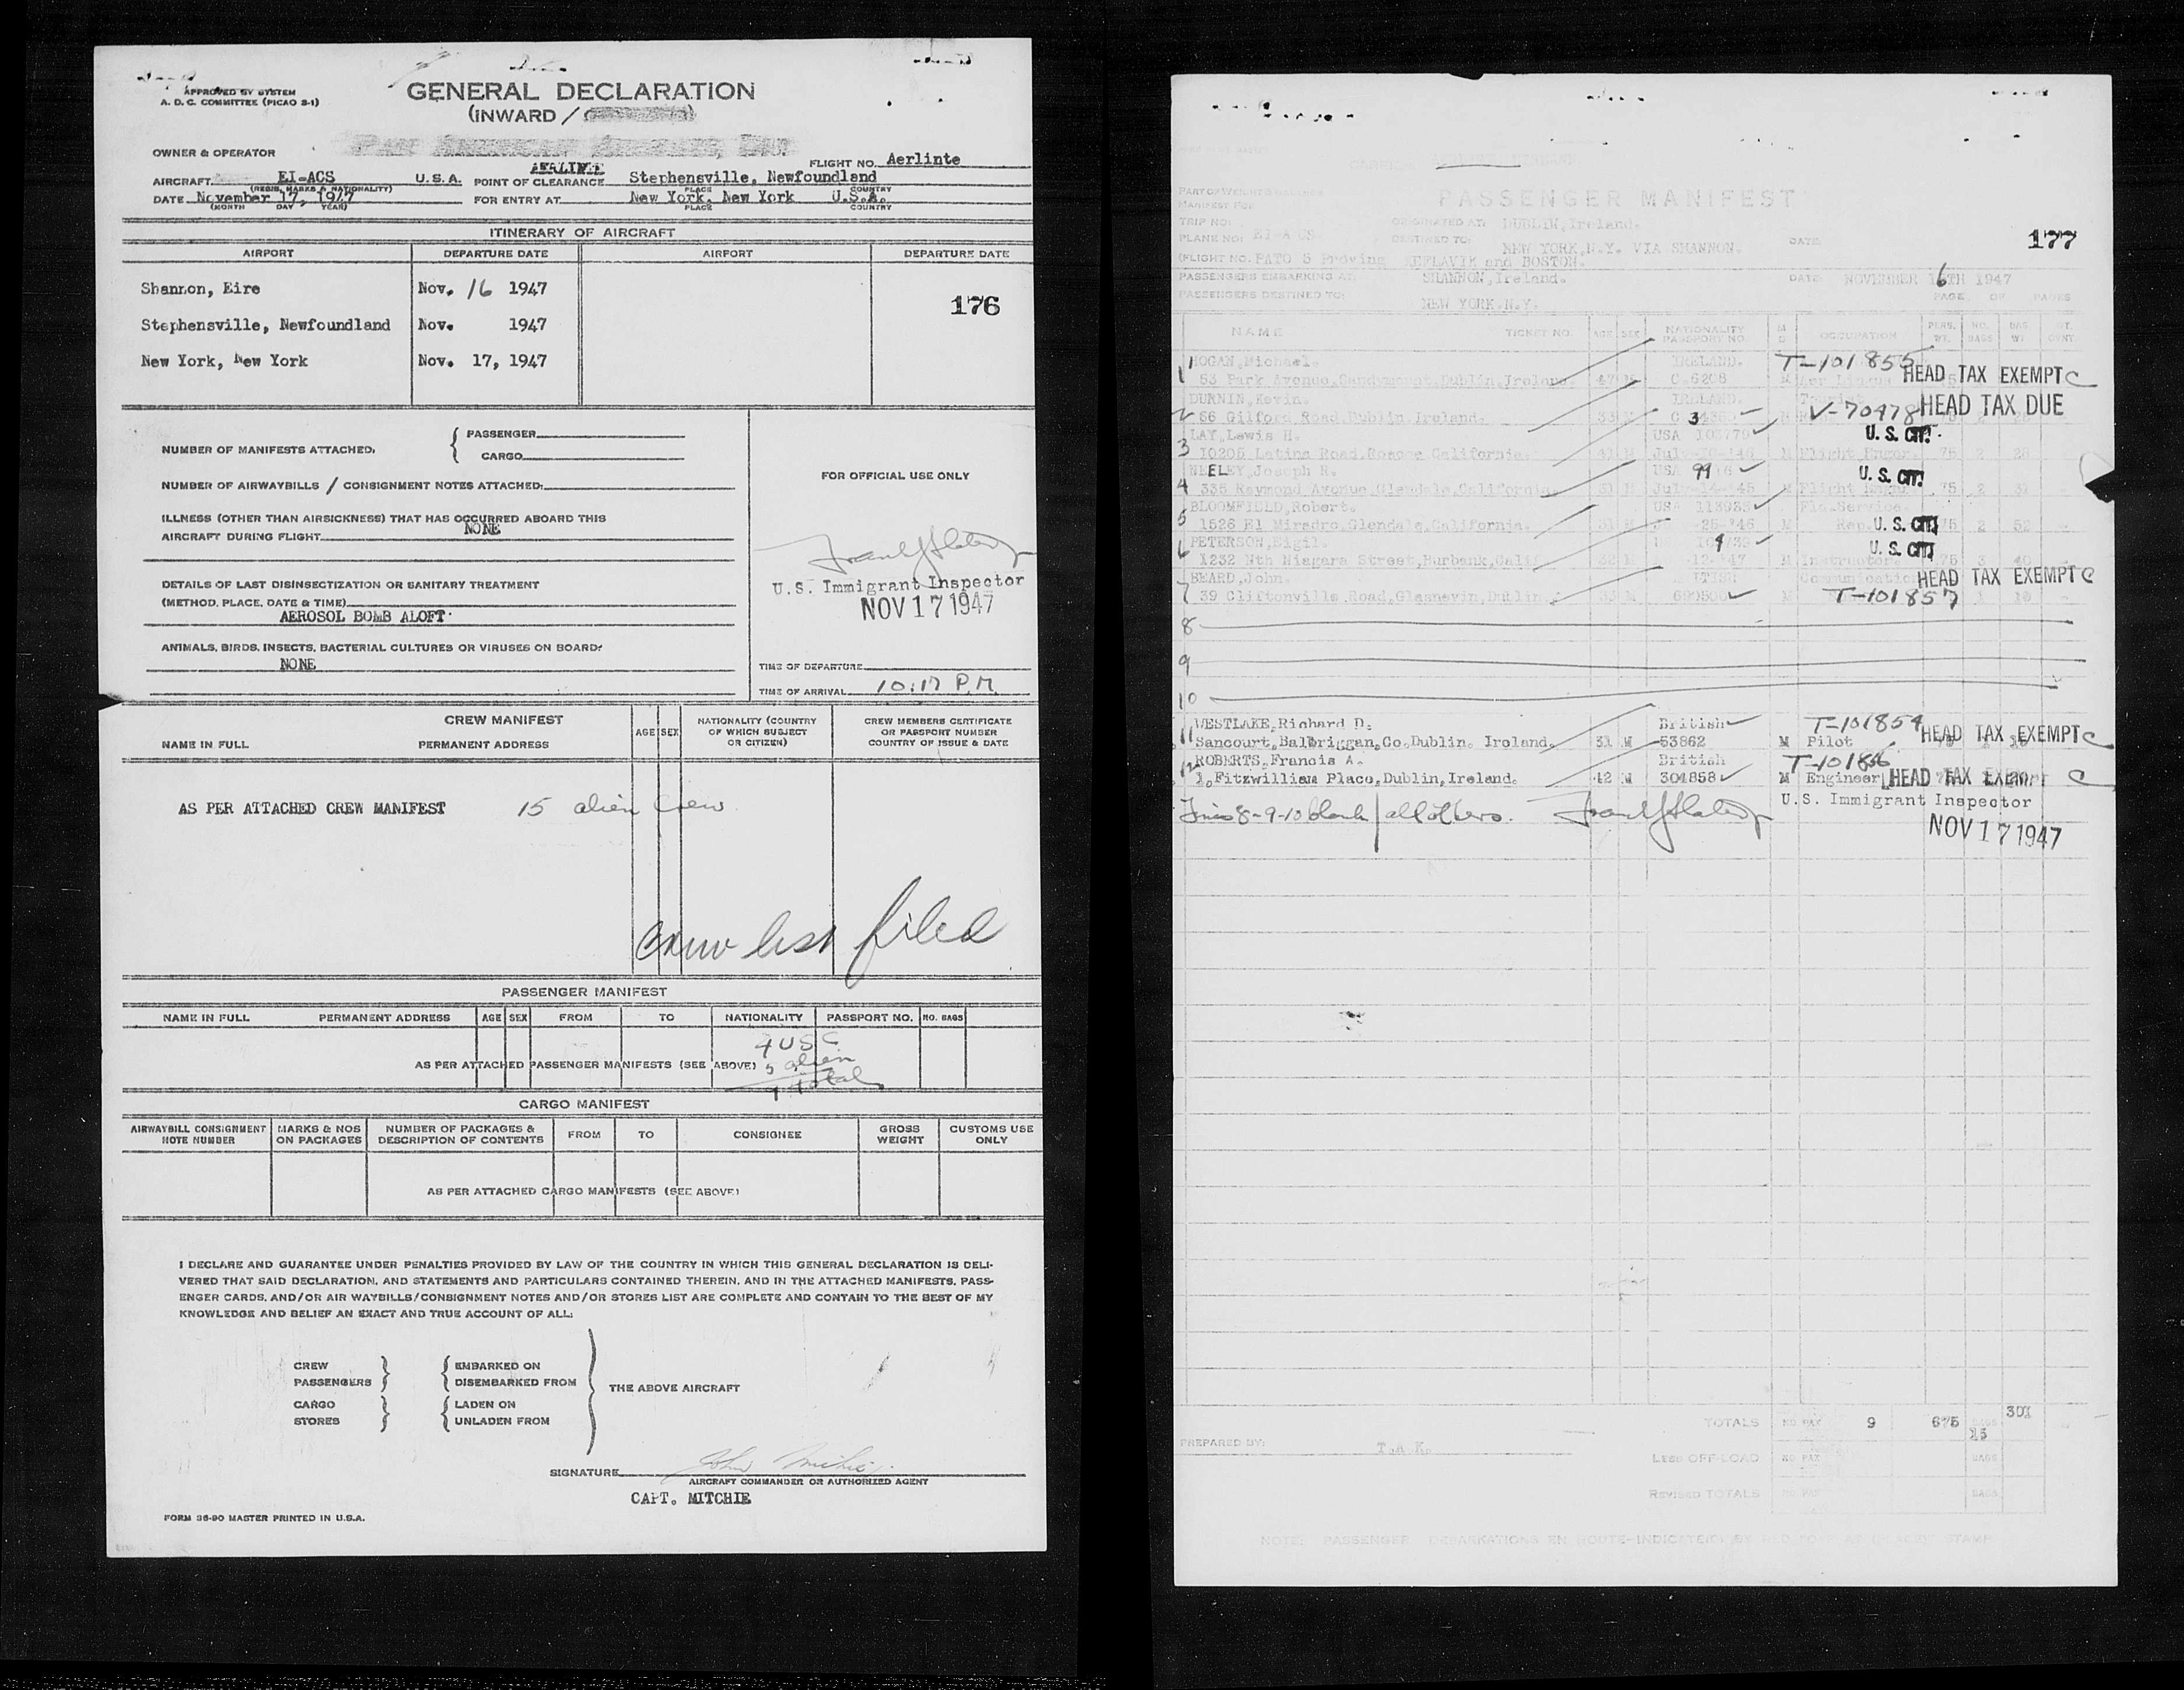 APPROVED BY SYSTEM
A. D. C. COMMITTEE (PICAO S-1)
GENERAL DECLARATION
(INWARD /
OWNER & OPERATOR
PAN AMERICAN AIRWAYS, INC.
FLIGHT NO. Aerlinte
AERLINTE
AIRCRAFT EI-ACS U.S.A. POINT OF CLEARANCE Stephensville, Newfoundland
(REGIS. MARKS & NATIONALITY) PLACE COUNTRY
DATE November 17, 1947 FOR ENTRY AT New York, New York U.S.A.
(MONTH DAY YEAR) PLACE COUNTRY
ITINERARY OF AIRCRAFT
AIRPORT DEPARTURE DATE AIRPORT DEPARTURE DATE
Shannon, Eire Nov. 16 1947
176
Stephensville, Newfoundland Nov. 1947
New York, New York Nov. 17, 1947
NUMBER OF MANIFESTS ATTACHED:
PASSENGER
CARGO
FOR OFFICIAL USE ONLY
NUMBER OF AIRWAYBILLS / CONSIGNMENT NOTES ATTACHED:
ILLNESS (OTHER THAN AIRSICKNESS) THAT HAS OCCURRED ABOARD THIS
AIRCRAFT DURING FLIGHT NONE
DETAILS OF LAST DISINSECTIZATION OR SANITARY TREATMENT
(METHOD, PLACE, DATE & TIME)
AEROSOL BOMB ALOFT
U.S. Immigrant Inspector
NOV 17 1947
ANIMALS, BIRDS, INSECTS, BACTERIAL CULTURES OR VIRUSES ON BOARD:
NONE
TIME OF DEPARTURE
TIME OF ARRIVAL 10:17 P.M.
CREW MANIFEST
NAME IN FULL PERMANENT ADDRESS AGE SEX NATIONALITY (COUNTRY OF WHICH SUBJECT OR CITIZEN) CREW MEMBERS CERTIFICATE OR PASSPORT NUMBER COUNTRY OF ISSUE & DATE
AS PER ATTACHED CREW MANIFEST 15 alien crew
Crew list filed
PASSENGER MANIFEST
NAME IN FULL PERMANENT ADDRESS AGE SEX FROM TO NATIONALITY PASSPORT NO. NO. BAGS
4 USC
AS PER ATTACHED PASSENGER MANIFESTS (SEE ABOVE) 5 alien
9 total
CARGO MANIFEST
AIRWAYBILL CONSIGNMENT NOTE NUMBER MARKS & NOS ON PACKAGES NUMBER OF PACKAGES & DESCRIPTION OF CONTENTS FROM TO CONSIGNEE GROSS WEIGHT CUSTOMS USE ONLY
AS PER ATTACHED CARGO MANIFESTS (SEE ABOVE)
I DECLARE AND GUARANTEE UNDER PENALTIES PROVIDED BY LAW OF THE COUNTRY IN WHICH THIS GENERAL DECLARATION IS DELI-
VERED THAT SAID DECLARATION, AND STATEMENTS AND PARTICULARS CONTAINED THEREIN, AND IN THE ATTACHED MANIFESTS, PASS-
ENGER CARDS, AND/OR AIR WAYBILLS/CONSIGNMENT NOTES AND/OR STORES LIST ARE COMPLETE AND CONTAIN TO THE BEST OF MY
KNOWLEDGE AND BELIEF AN EXACT AND TRUE ACCOUNT OF ALL:
CREW EMBARKED ON
PASSENGERS DISEMBARKED FROM
THE ABOVE AIRCRAFT
CARGO LADEN ON
STORES UNLADEN FROM
SIGNATURE John Mitchie
AIRCRAFT COMMANDER OR AUTHORIZED AGENT
CAPT. MITCHIE
FORM 36-90 MASTER PRINTED IN U.S.A.
PASSENGER MANIFEST
MANIFEST FOR
TRIP NO: ORIGINATED AT: DUBLIN, Ireland.
177
PLANE NO: EI-ACS DESTINED TO: NEW YORK, N.Y. VIA SHANNON. DATE
(FLIGHT NO. PATO 5 Proving KEFLAVIK and BOSTON.
PASSENGERS EMBARKING AT: SHANNON, Ireland. DATE: NOVEMBER 16TH 1947
PASSENGERS DESTINED TO: NEW YORK. N.Y. PAGE OF PAGES
NAME TICKET NO. AGE SEX NATIONALITY PASSPORT NO. OCCUPATION PERS. WT. NO. BAGS BAG WT
1 HOGAN, Michael. IRELAND. T-101855
53 Park Avenue, Sandymount, Dublin, Ireland. 47 M C.6208 M HEAD TAX EXEMPT C
DURNIN, Kevin. IRELAND.
2 66 Gilford Road, Dublin, Ireland. 33 M V-70478 HEAD TAX DUE
LAY, Lewis H. USA U.S. CIT.
3 10205 Latina Road, Roscoe California. 41 M M Flight Engnr. 75 2 28
NEELEY, Joseph R. USA U.S. CIT.
4 335 Raymond Avenue, Glendale, California. 31 M July 45 M Flight 75 2
BLOOMFIELD, Robert. USA 113935
5 1526 El Miradro, Glendale, California. 31 M 25-'46 M Rep. U.S. CIT 75 2 52
6 PETERSON, Eigil. U.S. CIT
1232 Nth Niagara Street, Burbank, Calif M 12-'47 M Instructor. 75 3 40
BEARD, John. HEAD TAX EXEMPT C
7 39 Cliftonville Road, Glasnevin, Dublin. 33 M 690500 M T-101857
8
9
10
WESTLAKE, Richard D. British T-101854
11 Sancourt, Balbriggan, Co. Dublin. Ireland. 31 M 53862 M Pilot HEAD TAX EXEMPT C
ROBERTS, Francis A. British T-101856
12 3, Fitzwilliam Place, Dublin, Ireland. 42 M 304858 M Engineer HEAD TAX EXEMPT C
Lines 8-9-10 blank / all others.
U.S. Immigrant Inspector
NOV 17 1947
TOTALS NO PAX 9 675 BAGS 15 301
PREPARED BY: T.A.K.
LESS OFF-LOAD NO PAX BAGS
REVISED TOTALS NO PAX BAGS
NOTE: PASSENGER DEBARKATIONS EN ROUTE-INDICATE STAMP